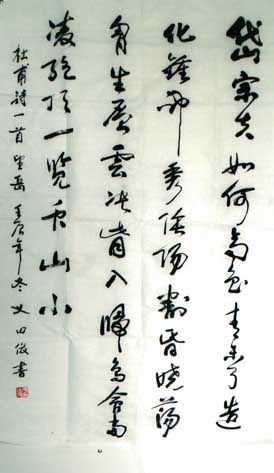 岱宗夫如何齊魯青未了造
化鍾神秀陰陽割昏曉蕩
胷生層雲決眥入歸鳥會當
凌絶頂一覽众山小
杜甫詩一首望岳年冬田俊書